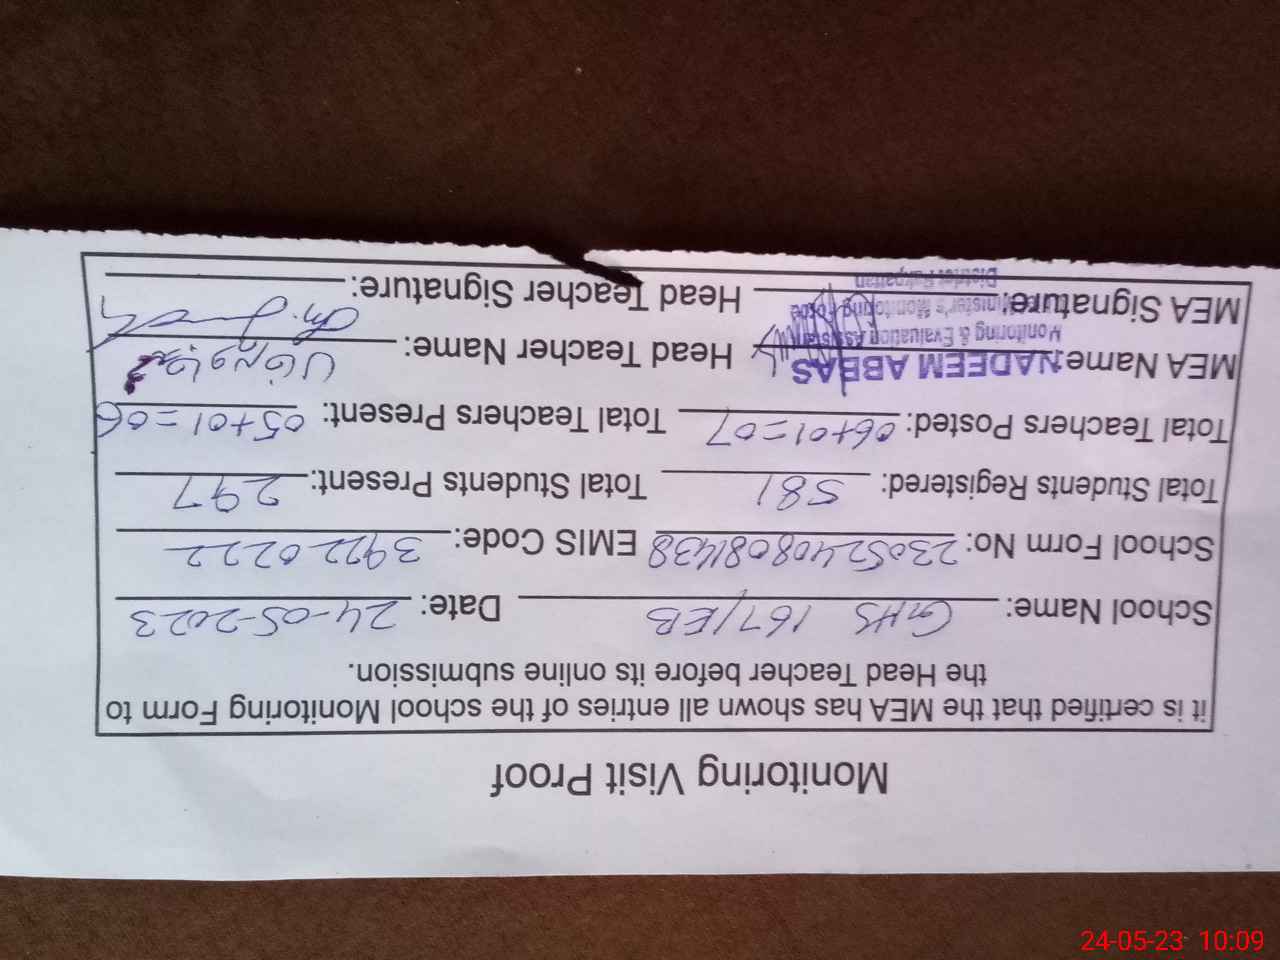 Monitoring Visit Proof
it is certified that the MEA has shown all entries of the school Monitoring Form to
the Head Teacher before its online submission.
School Name: GHS 167/EB Date: 24-05-2023
School Form No: 23052408081438 EMIS Code: 39220222
Total Students Registered: 581 Total Students Present: 297
Total Teachers Posted: 06+01=07 Total Teachers Present: 05+01=06
MEA Name: NADEEM ABBAS Head Teacher Name:
Monitoring & Evaluation Assistant
MEA Signature: Minister's Monitoring Force Head Teacher Signature:
District Pakpattan
24-05-23 10:09